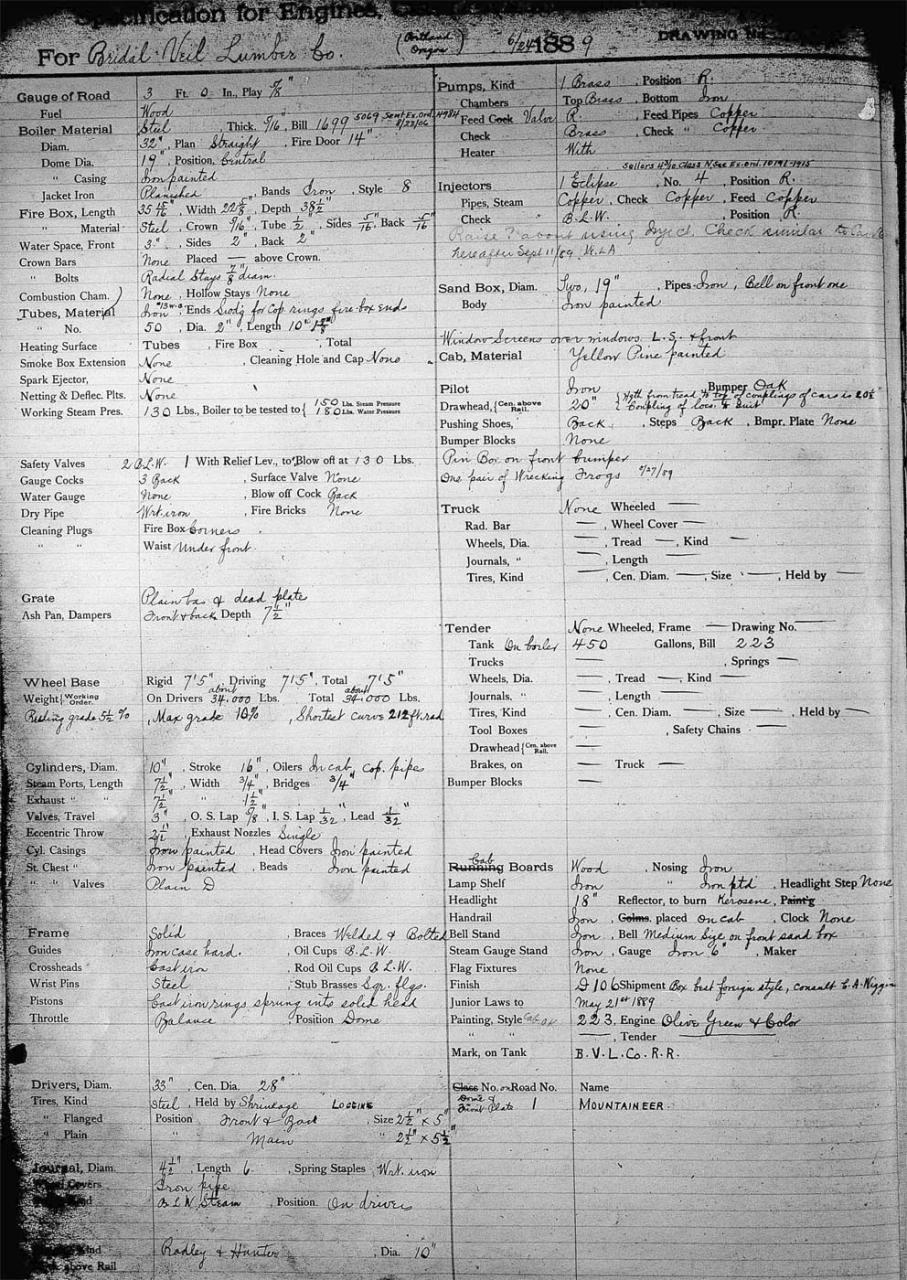 Specification for Engines,
For Bridal Veil Lumber Co. (Portland Oregon) 6/24 1889 DRAWING No.
Gauge of Road 3 Ft. 0 In., Play 5/8"
Fuel Wood
Boiler Material Steel Thick. 5/16, Bill 1699 5069 Sent Ex. Ord. N984 8/23/06
Diam. 32", Plan Straight, Fire Door 14"
Dome Dia. 19", Position, Central
" Casing Iron painted
Jacket Iron Planished, Bands Iron, Style 8
Fire Box, Length 35, Width 22 5/8, Depth 38 1/2"
" Material Steel, Crown 5/16, Tube 1/2, Sides 5/16, Back 5/16
Water Space, Front 3", Sides 2", Back 2"
Crown Bars None Placed — above Crown.
" Bolts Radial Stays 7/8" diam.
Combustion Cham. None, Hollow Stays None
Tubes, Material Iron, Ends Swdg for Cop rings fire-box ends
" No. 50, Dia. 2", Length 10"
Heating Surface Tubes, Fire Box, Total
Smoke Box Extension None, Cleaning Hole and Cap None
Spark Ejector, None
Netting & Deflec. Plts. None
Working Steam Pres. 130 Lbs., Boiler to be tested to { 150 Lbs. Steam Pressure 180 Lbs. Water Pressure
Safety Valves 2 B.L.W. 1 With Relief Lev., to Blow off at 130 Lbs.
Gauge Cocks 3 Back, Surface Valve None
Water Gauge None, Blow off Cock Back
Dry Pipe Wrt. iron, Fire Bricks None
Cleaning Plugs Fire Box Corners
" " Waist Under front
Grate Plain bas & dead plate
Ash Pan, Dampers Front & back Depth 7 1/2"
Wheel Base Rigid 7'5", Driving 7'5", Total 7'5"
Weight { Working Order. On Drivers about 34,000 Lbs. Total about 34,000 Lbs.
Ruling grade 5 1/2 %, Max grade 10%, Shortest Curve 212 ft. rad
Cylinders, Diam. 10", Stroke 16", Oilers In cab, Cop. pipes
Steam Ports, Length 7 1/2", Width 3/4", Bridges 3/4"
Exhaust " " 7 1/2" " 1 1/2"
Valves, Travel 3", O. S. Lap 5/8", I. S. Lap 1/32", Lead 1/32"
Eccentric Throw 2 1/2", Exhaust Nozzles Single
Cyl. Casings Iron painted, Head Covers Iron painted
St. Chest " Iron painted, Beads Iron painted
" " Valves Plain D
Frame Solid, Braces Welded & Bolted
Guides Iron case hard., Oil Cups B.L.W.
Crossheads Cast iron, Rod Oil Cups B.L.W.
Wrist Pins Steel, Stub Brasses Sqr. flgs.
Pistons Cast iron rings sprung into solid head
Throttle Balance, Position Dome
Drivers, Diam. 33", Cen. Dia. 28"
Tires, Kind Steel, Held by Shrinkage LOGGING
" Flanged Position Front & Back, Size 2 1/2" x 5"
" Plain " Main " 2 1/2" x 5 1/2"
Journal, Diam. 4 1/2", Length 6, Spring Staples Wrt. iron
Wheel Covers Iron pipe
Kind B.L.W. Steam, Position. On drivers
Kind Radley & Hunter, Dia. 10"
above Rail
Pumps, Kind 1 Brass, Position R.
Chambers Top Brass, Bottom Iron
Feed Cock Valve R., Feed Pipes Copper
Check Brass, Check " Copper
Heater With
Sellers Class N. See Ex. ord. 10191-1915
Injectors 1 Eclipse, No. 4, Position R.
Pipes, Steam Copper, Check Copper, Feed Copper
Check B.L.W., Position R.
Raise about using Inject. Check similar to
hereafter Sept 11/89
Sand Box, Diam. Two, 19", Pipes Iron, Bell on front one
Body Iron painted
Window Screens over windows L.S. & front
Cab, Material Yellow Pine painted
Pilot Iron Bumper Oak
Drawhead, { Cen. above Rail. 20" { Hgth from tread to top of couplings of cars is 20 1/2" Coupling of loco. to suit
Pushing Shoes, Back, Steps Back, Bmpr. Plate None
Bumper Blocks None
Pin Box on front bumper
One pair of Wrecking Frogs 6/27/89
Truck None Wheeled —
Rad. Bar —, Wheel Cover —
Wheels, Dia. —, Tread —, Kind —
Journals, " —, Length —
Tires, Kind —, Cen. Diam. —, Size —, Held by —
Tender None Wheeled, Frame — Drawing No. —
Tank On boiler 450 Gallons, Bill 223
Trucks —, Springs —
Wheels, Dia. —, Tread —, Kind —
Journals, " —, Length —
Tires, Kind —, Cen. Diam. —, Size —, Held by —
Tool Boxes —, Safety Chains —
Drawhead { Cen. above Rail. —
Brakes, on — Truck —
Bumper Blocks —
Running Cab Boards Wood, Nosing Iron
Lamp Shelf Iron " Iron ptd, Headlight Step None
Headlight 18" Reflector, to burn Kerosene, Paint'g
Handrail Iron, Colms. placed On cab, Clock None
Bell Stand Iron, Bell Medium Size on front sand box
Steam Gauge Stand Iron, Gauge Iron 6", Maker
Flag Fixtures None
Finish D 106 Shipment Box best foreign style, consult C. A. Wiggin
Junior Laws to May 21st 1889
Painting, Style 223, Engine Olive Green & Color
" " —, Tender
Mark, on Tank B.V.L.Co.R.R.
Class No. or Road No. Name
Dome & Front Plate 1 MOUNTAINEER.